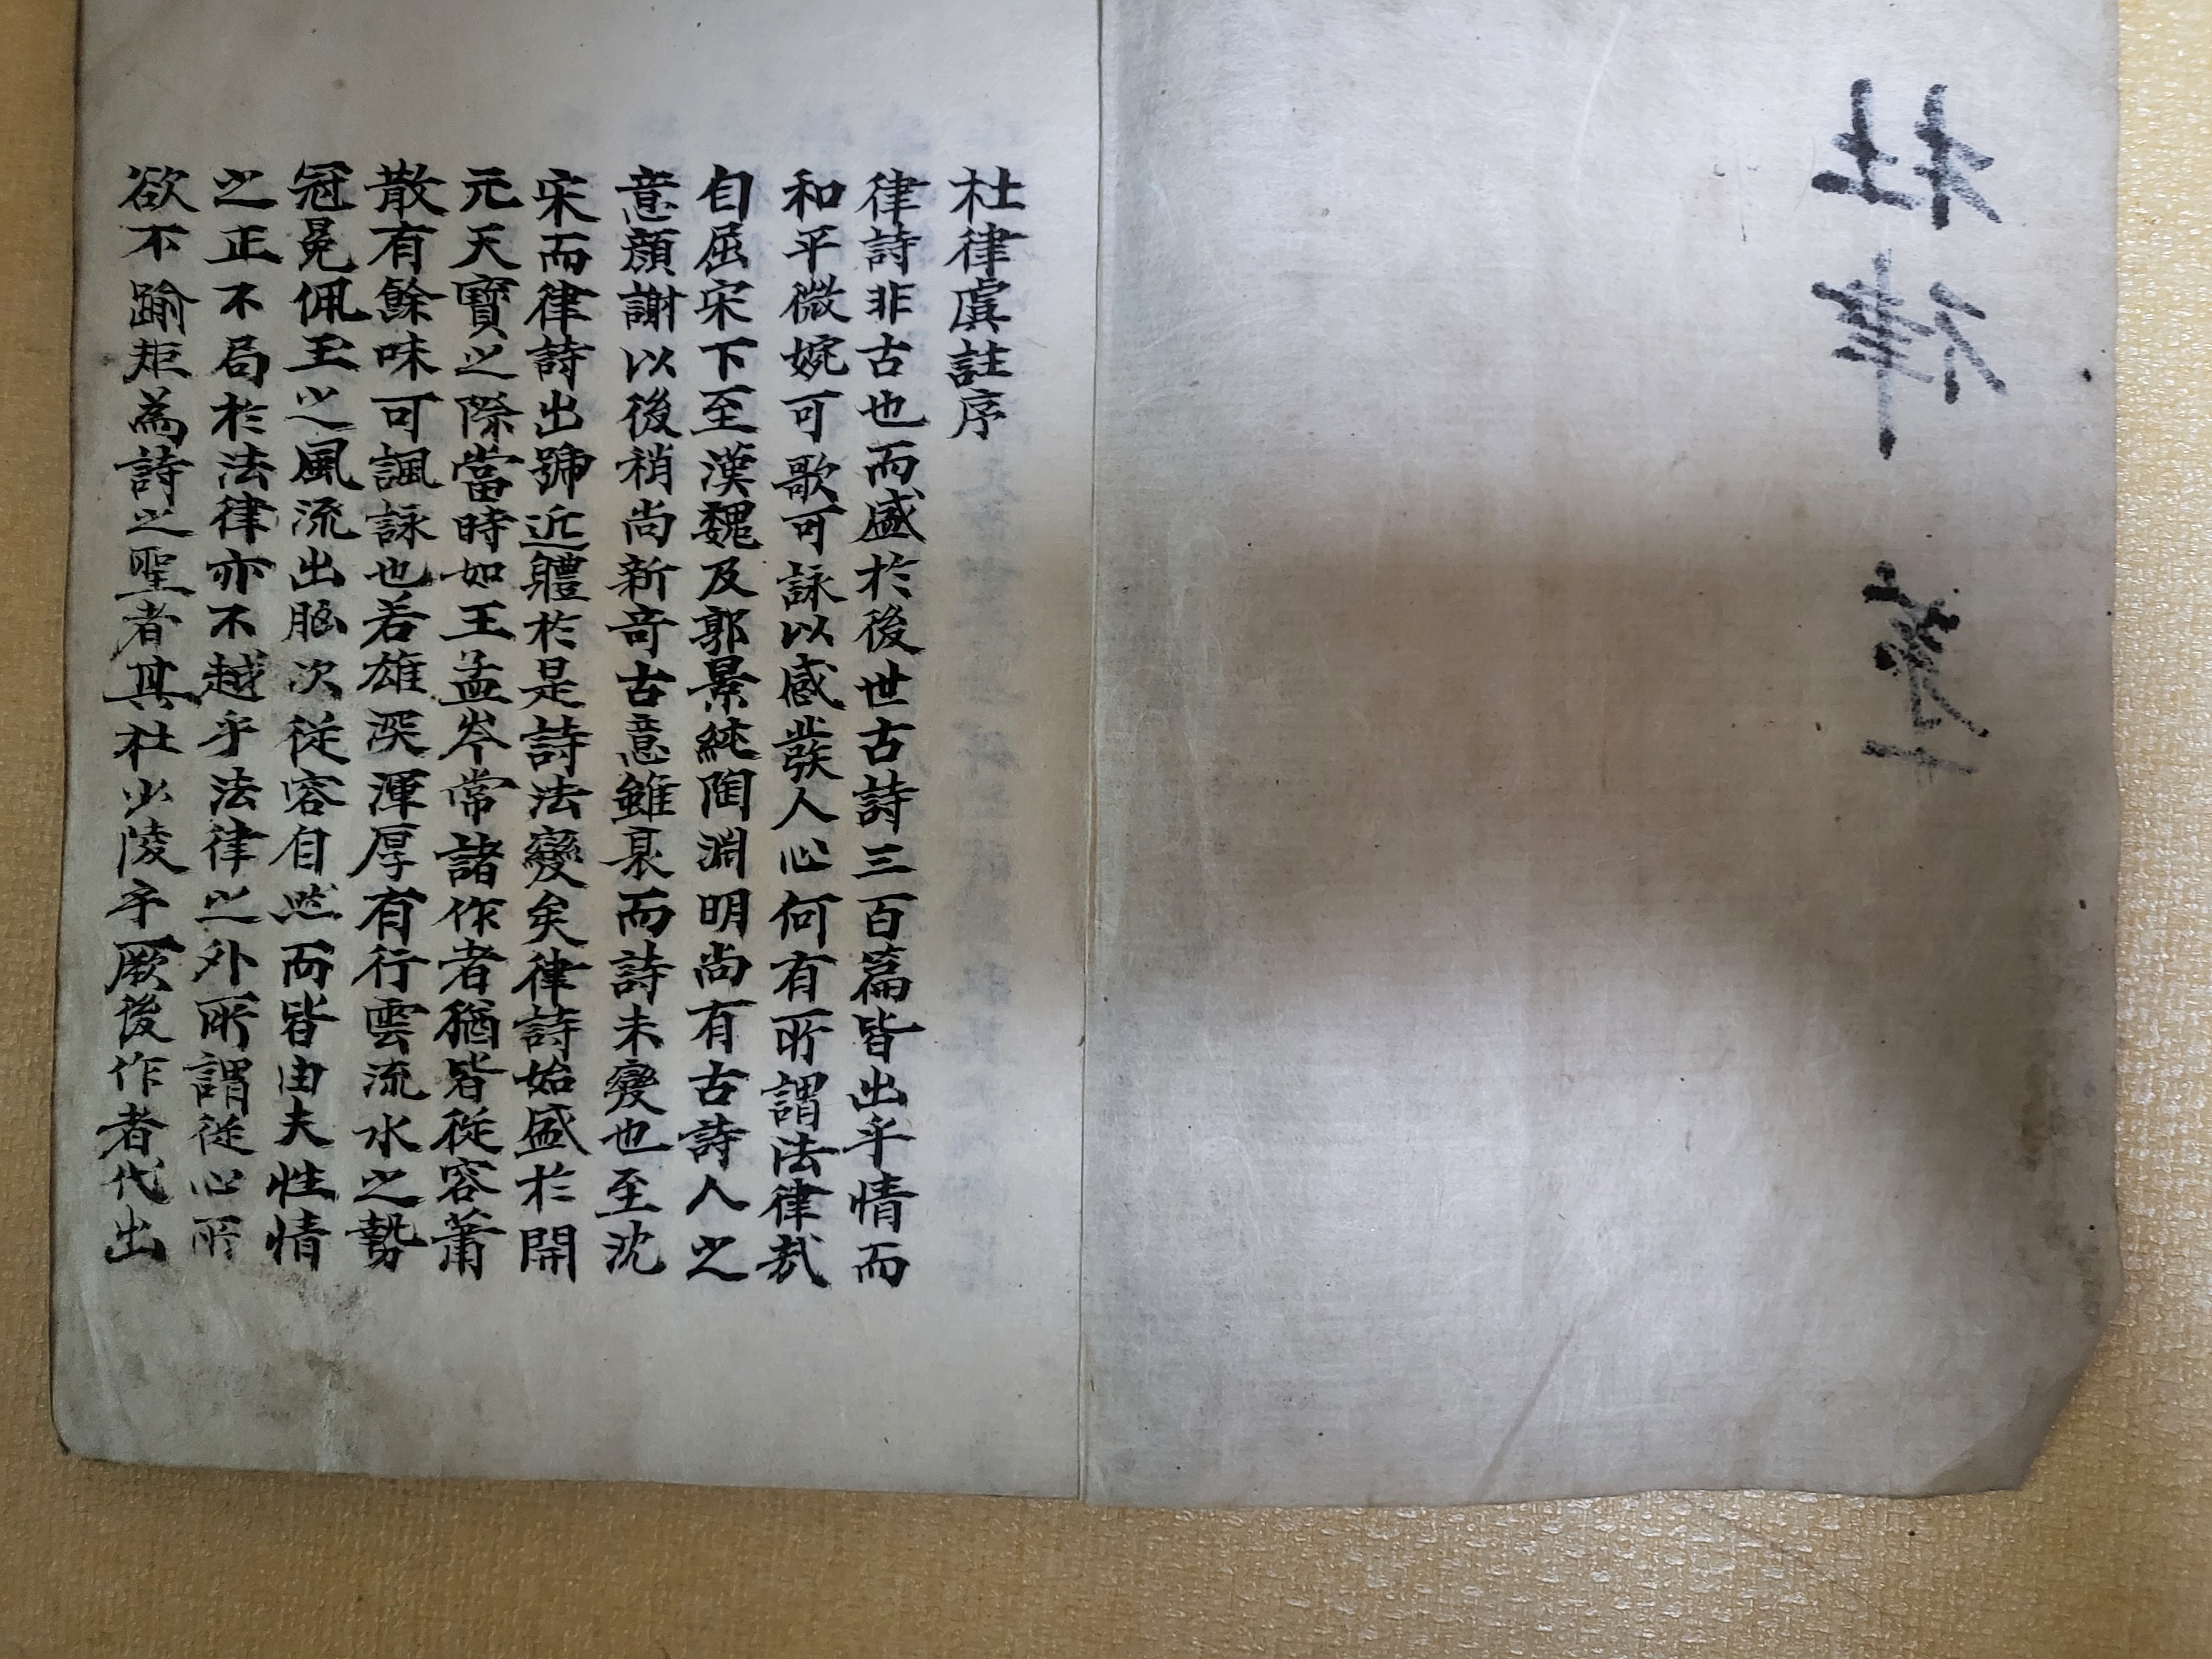 杜律
杜律虞註序
律詩非古也而盛於後世古詩三百篇皆出乎情而
和平微婉可歌可詠以感發人心何有所謂法律哉
自屈宋下至漢魏及郭景純陶淵明尚有古詩人之
意顔謝以後稍尚新奇古意雖衰而詩未變也至沈
宋而律詩出號近體於是詩法變矣律詩始盛於開
元天寶之際當時如王孟岑常諸作者猶皆從容蕭
散有餘味可諷詠也若雄深渾厚有行雲流水之勢
冠冕佩玉之風流出胸次從容自然而皆由夫性情
之正不局於法律亦不越乎法律之外所謂從心所
欲不踰矩為詩之聖者其杜少陵乎厥後作者代出